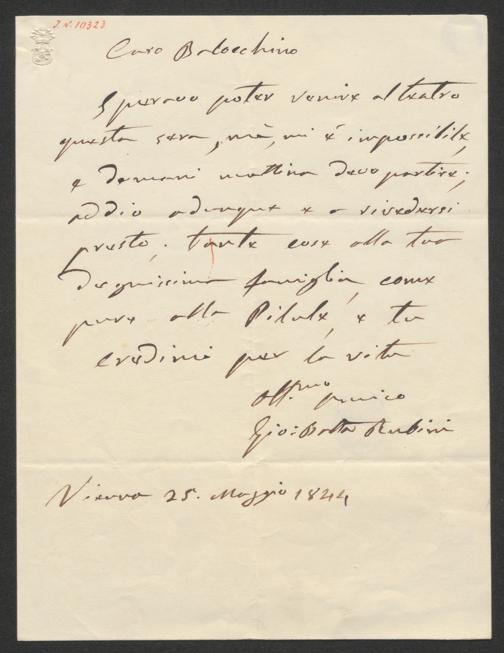 J. N. 10323
Caro Balocchino
Speravo poter venire al teatro
questa sera, mà, mi è impossibile,
e domani mattina devo partire;
addio adunque e a rivedersi
presto, tante cose alla tua
degnissima famiglia, come
pure alla Pilule, e tu
credimi per la vita
Aff.mo amico
Gio: Batta Rubini
Vienna 25. Maggio 1844